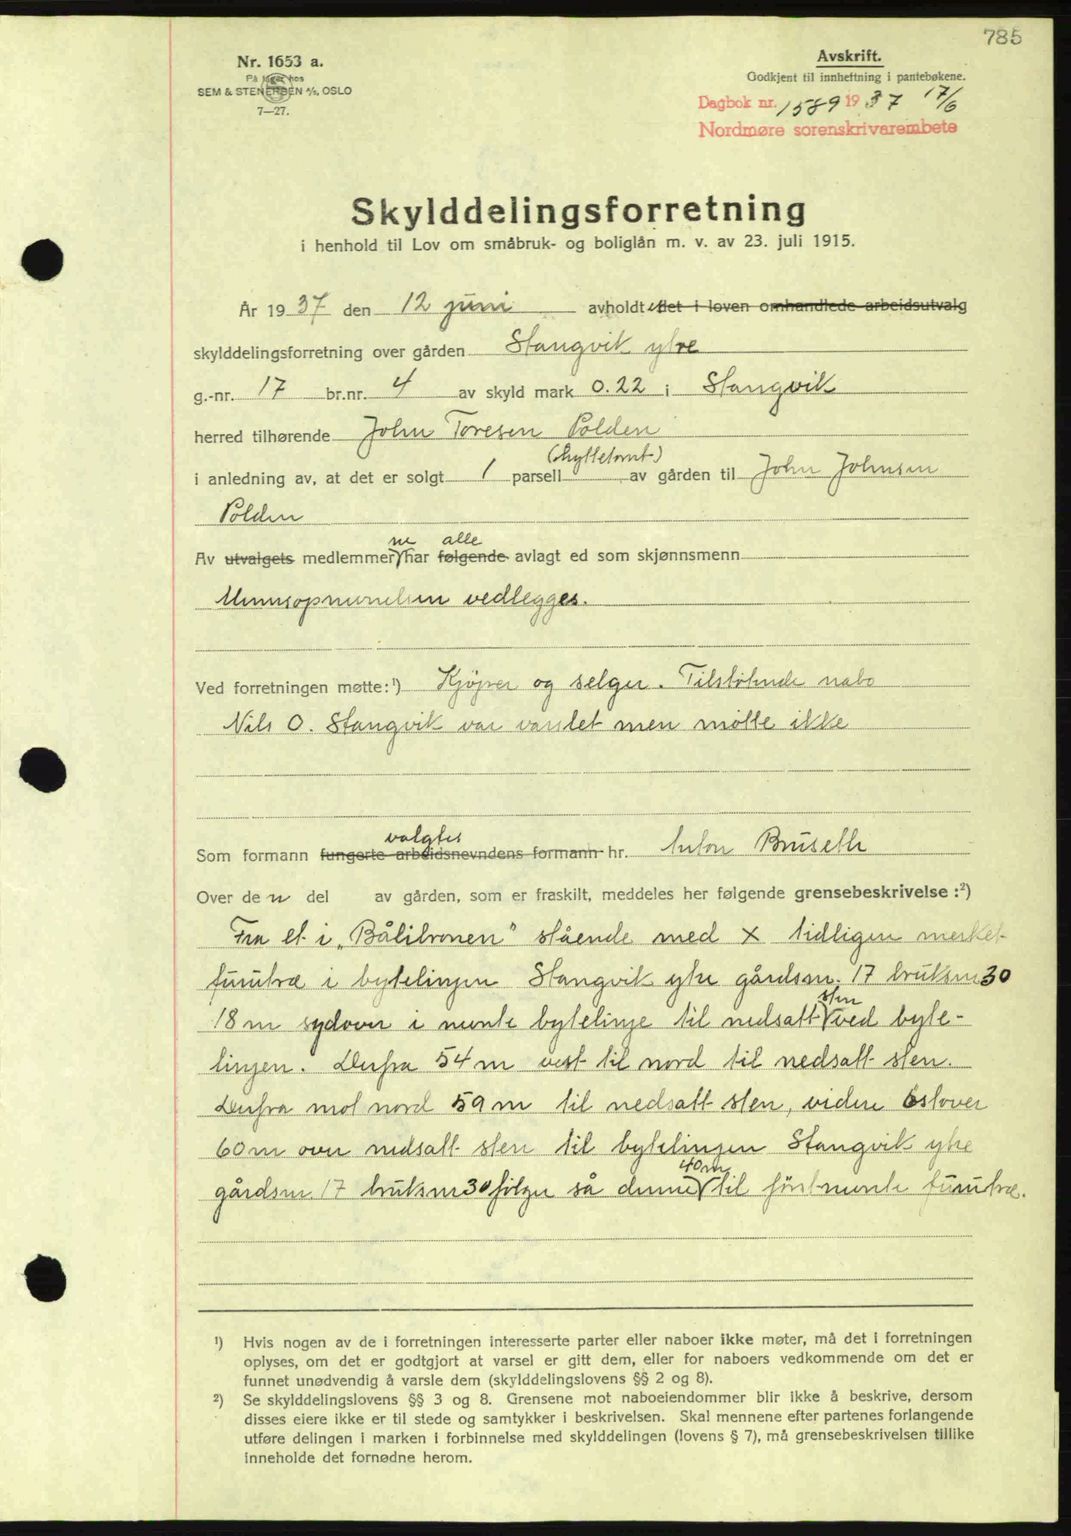 785
Nr. 1653 a.
På lager hos
SEM & STENERSEN A/S, OSLO
7—27.
Avskrift.
Godkjent til innheftning i pantebøkene.
Dagbok nr. 1589 1937 17/6
Nordmøre sorenskrivarembete
Skylddelingsforretning
i henhold til Lov om småbruk- og boliglån m. v. av 23. juli 1915.
År 1937 den 12 juni avholdt det i loven omhandlede arbeidsutvalg
skylddelingsforretning over gården Stangvik ytre
g.-nr. 17 br.nr. 4 av skyld mark 0.22 i Stangvik
herred tilhørende John Toresen Polden
i anledning av, at det er solgt 1 parsell (hyttetomt) av gården til John Johnsen
Polden
Av utvalgets medlemmer ne har følgende alle avlagt ed som skjønnsmenn
vedlegges.
Ved forretningen møtte:¹) Kjøper og selger. Tilstøtende nabo
Nils O. Stangvik var varslet men møtte ikke
Som formann fungerte arbeidsnevndens formann valgtes hr. Anton Bruseth
Over den del av gården, som er fraskilt, meddeles her følgende grensebeskrivelse:²)
Fra et i „Bålitronen" stående med X tidligere merket
furutræ i bytelinjen Stangvik ytre gårdsnr. 17 bruksnr 30
18 m sydover i nevnte bytelinje til nedsatt sten ved byte-
linjen. Derfra 54 m vest til nord til nedsatt sten.
Derfra mot nord 59 m til nedsatt sten, videre østover
60 m over nedsatt sten til bytelinjen Stangvik ytre
gårdsnr 17 bruksnr 30 følger så denne 40 m til førstnevnte furutræ.
¹) Hvis nogen av de i forretningen interesserte parter eller naboer ikke møter, må det i forretningen
oplyses, om det er godtgjort at varsel er gitt dem, eller for naboers vedkommende om det er
funnet unødvendig å varsle dem (skylddelingslovens §§ 2 og 8).
²) Se skylddelingslovens §§ 3 og 8. Grensene mot naboeiendommer blir ikke å beskrive, dersom
disses eiere ikke er til stede og samtykker i beskrivelsen. Skal mennene efter partenes forlangende
utføre delingen i marken i forbinnelse med skylddelingen (lovens § 7), må grensebeskrivelsen tillike
inneholde det fornødne herom.